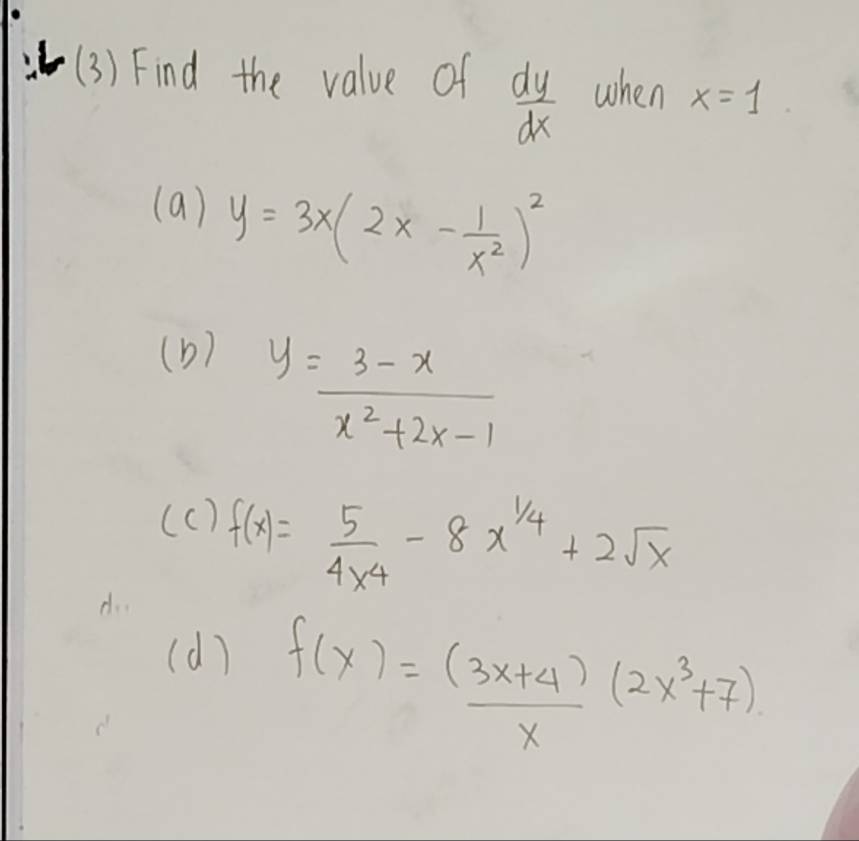 (3) Find the value of dy/dx when x = 1.
(a) y = 3x(2x - 1/x²)²
(b) y = 3 - x / x² + 2x - 1
(c) f(x) = 5/4x4 - 8x^1/4 + 2√x
(d) f(x) = (3x+4)/x (2x³+7).